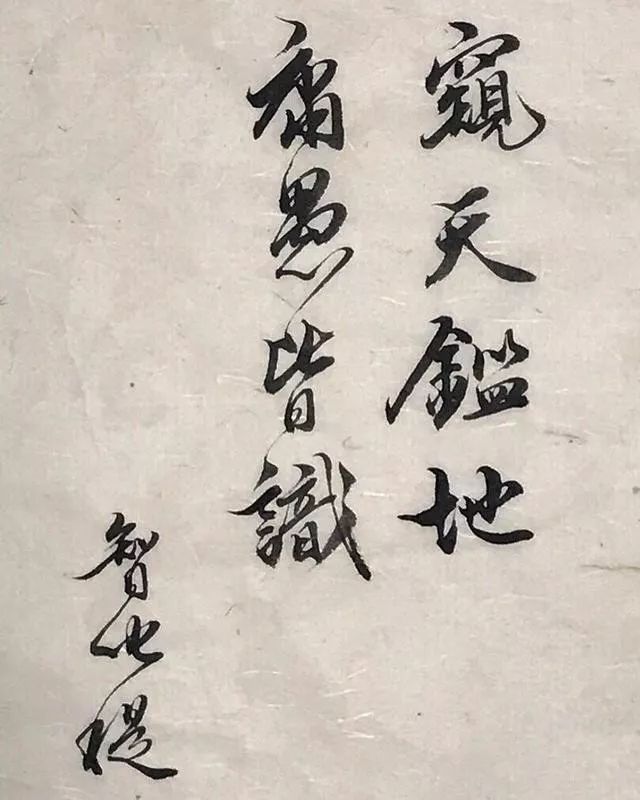 窺天鑑地
庸愚皆識
智化禔